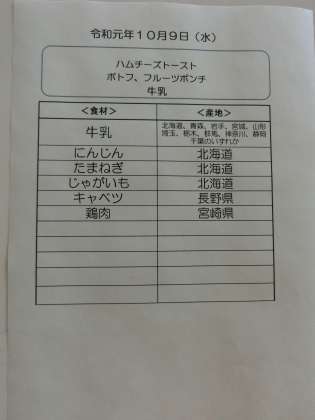 令和元年１０月９日（水）
ハムチーズトースト
ポトフ、フルーツポンチ
牛乳
＜食材＞ ＜産地＞
牛乳 北海道、青森、岩手、宮城、山形
埼玉、栃木、群馬、神奈川、静岡
千葉のいずれか
にんじん 北海道
たまねぎ 北海道
じゃがいも 北海道
キャベツ 長野県
鶏肉 宮崎県